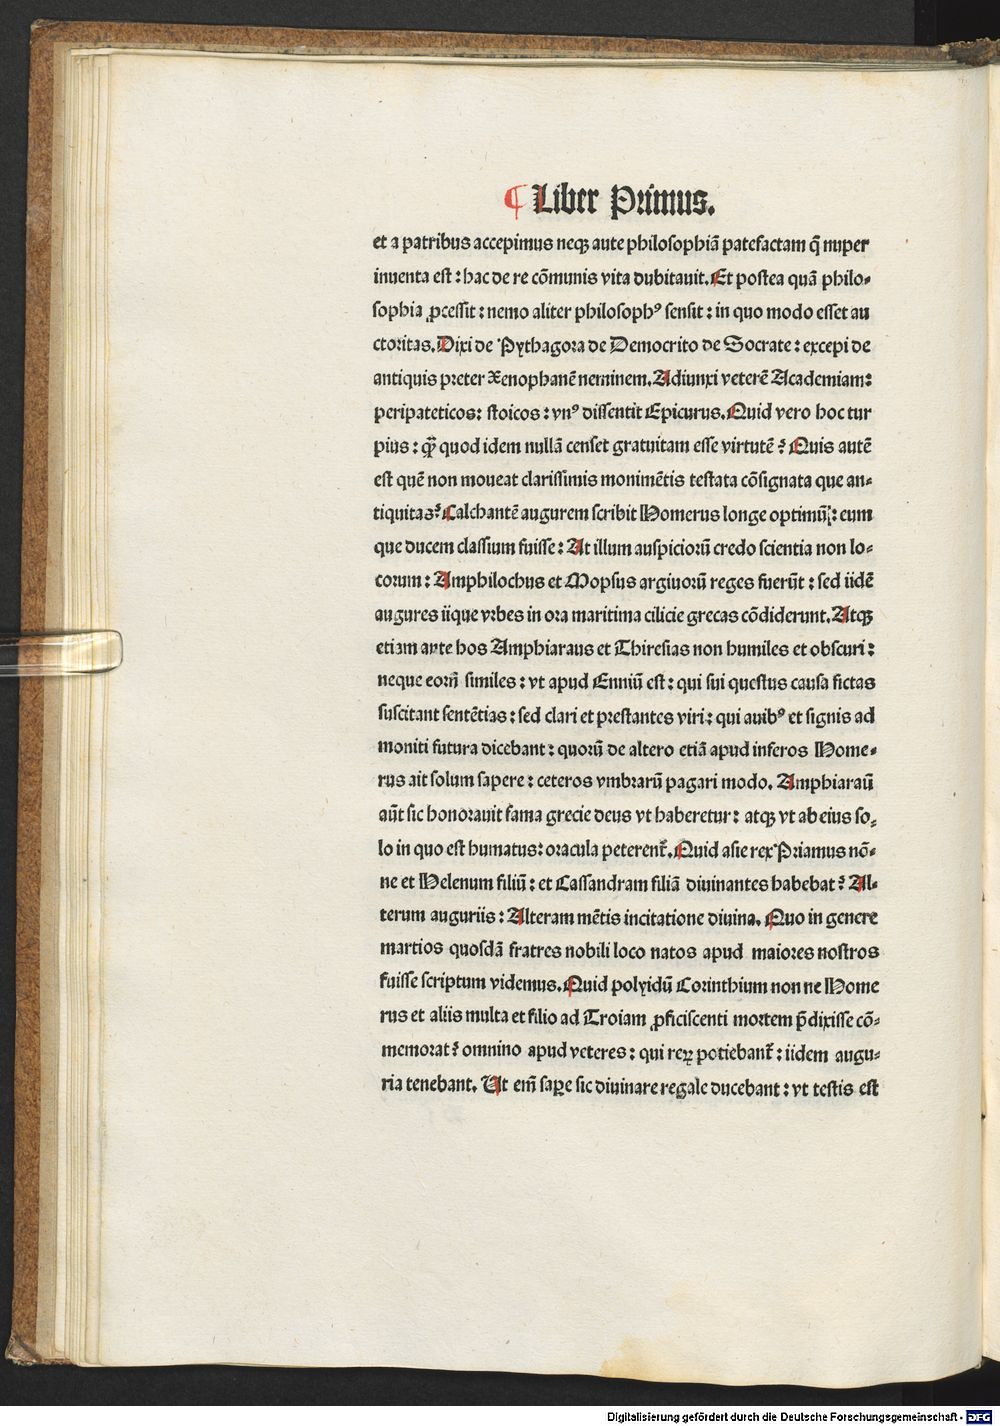 ¶ Liber Primus.
et a patribus accepimus neqꝫ aute philosophiā patefactam q̄ nuper
inuenta est : hac de re cōmunis vita dubitauit. Et postea quā philo⸗
sophia ꝓcessit : nemo aliter philosophꝰ sensit : in quo modo esset au
ctoritas. Dixi de Pythagora de Democrito de Socrate : excepi de
antiquis preter Xenophanē neminem. Adiunxi veterē Academiam:
peripateticos: stoicos : vnꝰ dissentit Epicurus. Quid vero hoc tur
pius : quod idem nullā censet gratuitam esse virtutē ? Quis autē
est quē non moueat clarissimis monimētis testata cōsignata que an⸗
tiquitas? Calchantē augurem scribit Homerus longe optimū : eum
que ducem classium fuisse : At illum auspiciorū credo scientia non lo⸗
corum : Amphilochus et Mopsus argiuorū reges fuerūt : sed iidē
augures iique vrbes in ora maritima cilicie grecas cōdiderunt. Atqꝫ
etiam ante hos Amphiaraus et Thiresias non humiles et obscuri :
neque eorū similes : vt apud Enniū est : qui sui questus causa fictas
suscitant sentētias : sed clari et prestantes viri : qui auibꝰ et signis ad
moniti futura dicebant : quorū de altero etiā apud inferos Home⸗
rus ait solum sapere : ceteros vmbrarū pagari modo. Amphiaraū
aūt sic honorauit fama grecie deus vt haberetur : atqꝫ vt ab eius so⸗
lo in quo est humatus: oracula peterent̄. Quid asie rex Priamus nō⸗
ne et Helenum filiū : et Cassandram filiā diuinantes habebat ? Al⸗
terum auguriis : Alteram mētis incitatione diuina. Quo in genere
martios quosdā fratres nobili loco natos apud maiores nostros
fuisse scriptum videmus. Quid polyidū Corinthium non ne Home
rus et aliis multa et filio ad Troiam ꝓficiscenti mortem p̄dixisse cō⸗
memorat ? omnino apud veteres : qui reꝝ potiebant̄ : iidem augu⸗
ria tenebant. Ut em̄ saꝑe sic diuinare regale ducebant : vt testis est
Digitalisierung gefördert durch die Deutsche Forschungsgemeinschaft - DFG